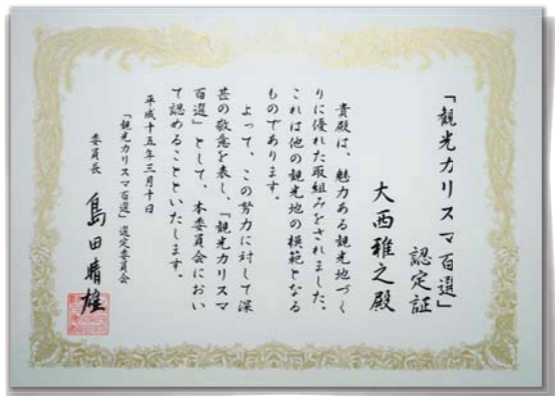 「観光カリスマ百選」
認定証
大西雅之殿
貴殿は、魅力ある観光地づく
りに優れた取組みをされました。
これは他の観光地の模範となる
ものであります。
よって、この努力に対して深
甚の敬意を表し、「観光カリスマ
百選」として、本委員会におい
て認めることといたします。
平成十五年三月十日
「観光カリスマ百選」選定委員会
委員長 島田晴雄